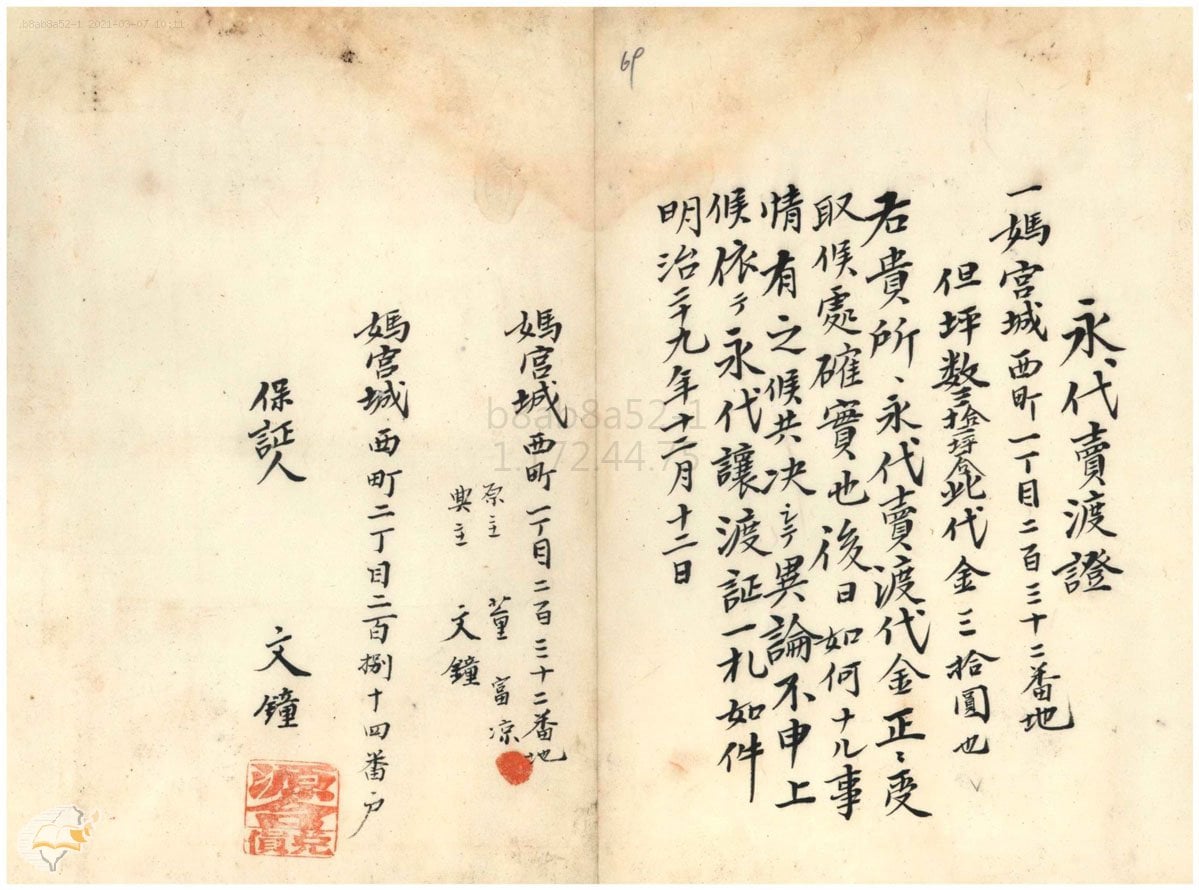 b8ab8a52-1 2021-03-07 10:11
69
永、代賣渡證
一媽宮城西町一丁目二百三十二番地
但坪数三拾坪合此代金三拾圓也
右貴所、永代賣渡代金正ニ受
取候處確實也後日如何ナル事
情有之候共决シテ異論不申上
候依テ永代讓渡証一札如件
明治二十九年十二月十二日
媽宮城西町一丁目二百三十二番地
原主 董富凉
興主 文鐘
媽宮城西町二丁目二百捌十四番户
保証人 文鐘
b8ab8a52-1
1.172.44.75